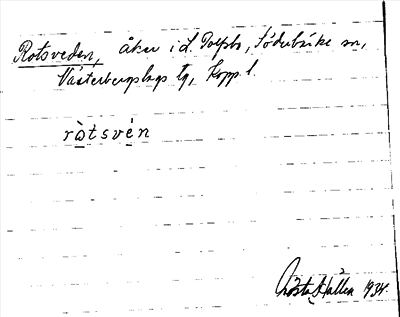 Rotsveden, åker i L. Tolfsbo, Söderbärke sn,
Västerbergslags tg, Kopp. l.
ròtsvén
Gösta Hallen 1934.